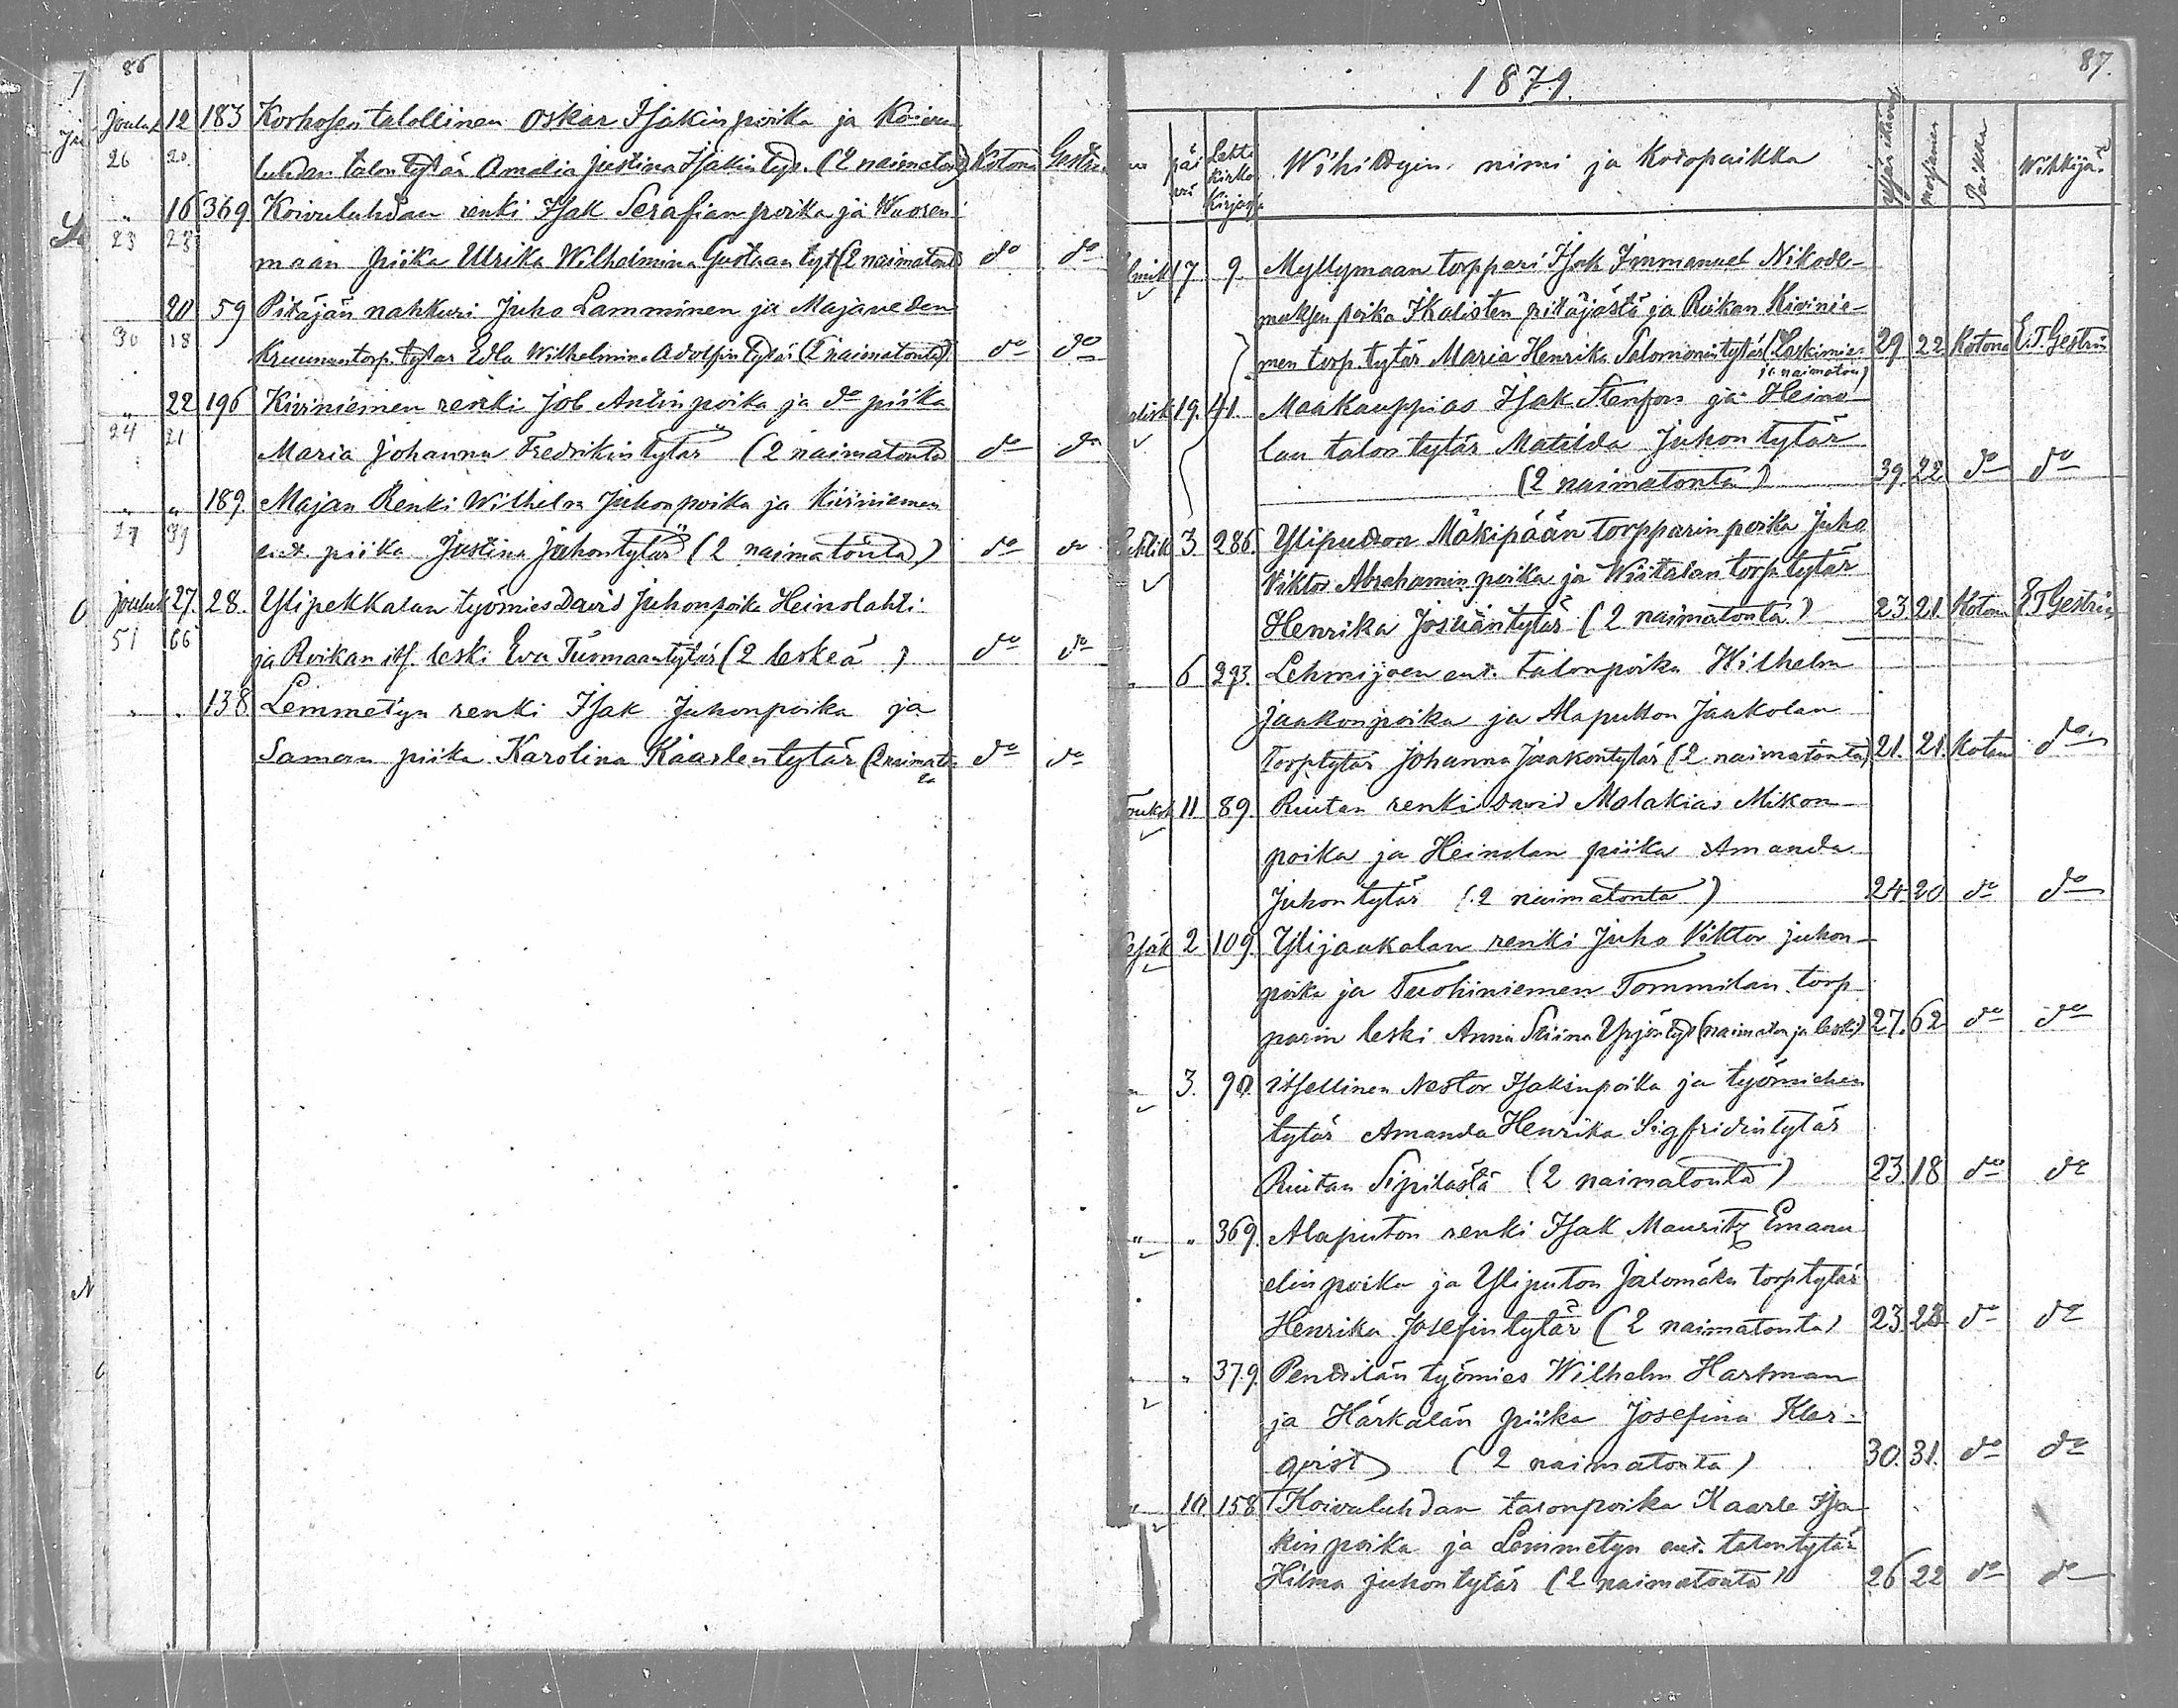 86
Jouluk 12 183 Korhosen talollinen Oskar Isakinpoika ja Koivu
26 20 luhdan talon tytär Amalia Justina Isakin tyt. (2 naimatont) Kotona Gestrin
" 16 369 Koivuluhdan renki Isak Serafianpoika ja Wuoren
23 23 maan piika Ulrika Wilhelmina Gustaan tyt (2 naimatont do do
20 59 Pitäjän nahkuri Juho Lamminen ja Majaveden
30 18 Kruununtorp. tytär Edla Wilhelmina Adolfin tytär (2 naimatonta) do do
" 22 196 Kiviniemen renki Job Antinpoika ja do piika
24 21 Maria Johanna Fredrikin tytär (2 naimatonta do do
" " 189. Majan Renki Wilhelm Juhonpoika ja Kiviniemen
27 39 e.t. piika Justina Juhontytär (2 naimatonta) do do
Jouluk 27. 28. Ylipekkalan työmies David Juhonpoika Heinolahti
51 66 ja Roikan its. leski Eva Tuomaantytär (2 leskeä) do do
" " 138 Lemmetyn renki Isak Juhonpoika ja
Saman piika Karolina Kaarlentytär (2 naimaton do do
ta
87.
1879.
päivä Lehti Kirkon Kirjassa Wihittyin nimi ja Kotopaikka Paikka Wihkijä
7 9. Myllymaan torppari Isak Immanuel Nikode-
muksen poika Ikalisten pitäjästä ja Roikan Kivinie-
men torp. tytär Maria Henrika Salomonintytär (Leskimies 29. 22 Kotona E.T. Gestrin
ja naimaton)
19. 41. Maakauppias Isak Stenfors ja Heino-
lan talon tytär Matilda Juhon tytär
(2 naimatonta) 39. 22 do do
Huhtik 3. 286. Yliputon Mäkipään torpparin poika Juho
Viktor Abrahamin poika ja Wiitalan torp. tytär
Henrika Josuantytär (2 naimatonta) 23. 21. Kotona E.T Gestrin
" 6 293. Lehmijoen ent. talonpoika Wilhelm
Jaakonpoika ja Alaputton Jaakolan
Torp tytär Johanna Jaakontytär (2 naimatonta) 21. 21. Kotona do
Toukok 11 89. Riutan renki David Malakias Mikon-
poika ja Heinolan piika Amanda
Juhon tytär (2 naimatonta) 24 20 do do
Kesäk 2 109. Ylijaakalan renki Juho Viktor Juhon-
poika ja Tuohiniemen Tommilan torp-
parin leski Anna Stiina Yrjön tyt (naimaton ja leski) 27. 62 do do
" 3. 90. itsellinen Nestor Isakinpoika ja työmiehen
tytär Amanda Henrika Sigfridintytär
Riutan Sipilästä (2 naimatonta) 23 18 do do
" " 369. Alaputon renki Isak Mauritz Emanu
elin poika ja Yliputon Jalomäen torp tytär
Henrika Josefintytär (2 naimatonta) 23. 28 do do
" " 379. Penttilän työmies Wilhelm Hartman
ja Härkälän piika Josefina Kler-
qvist (2 naimatonta) 30. 31. do do
" 10. 158 Koivuluhdan talonpoika Kaarle Isa
kin poika ja Lemmetyn ent. talon tytär
Hilma Juhon tytär (2 naimatonta) 26 22 do do